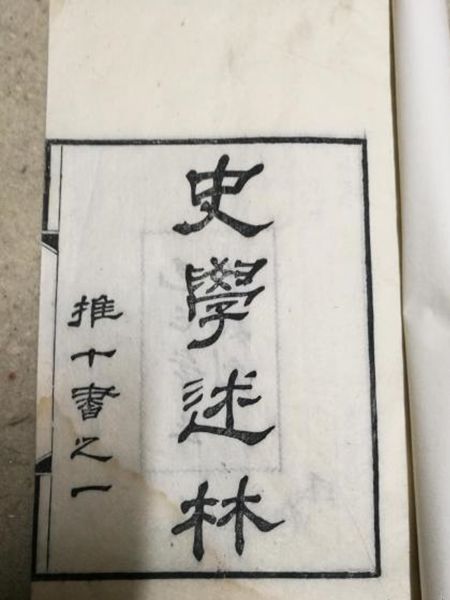 史學述林
推十書之一